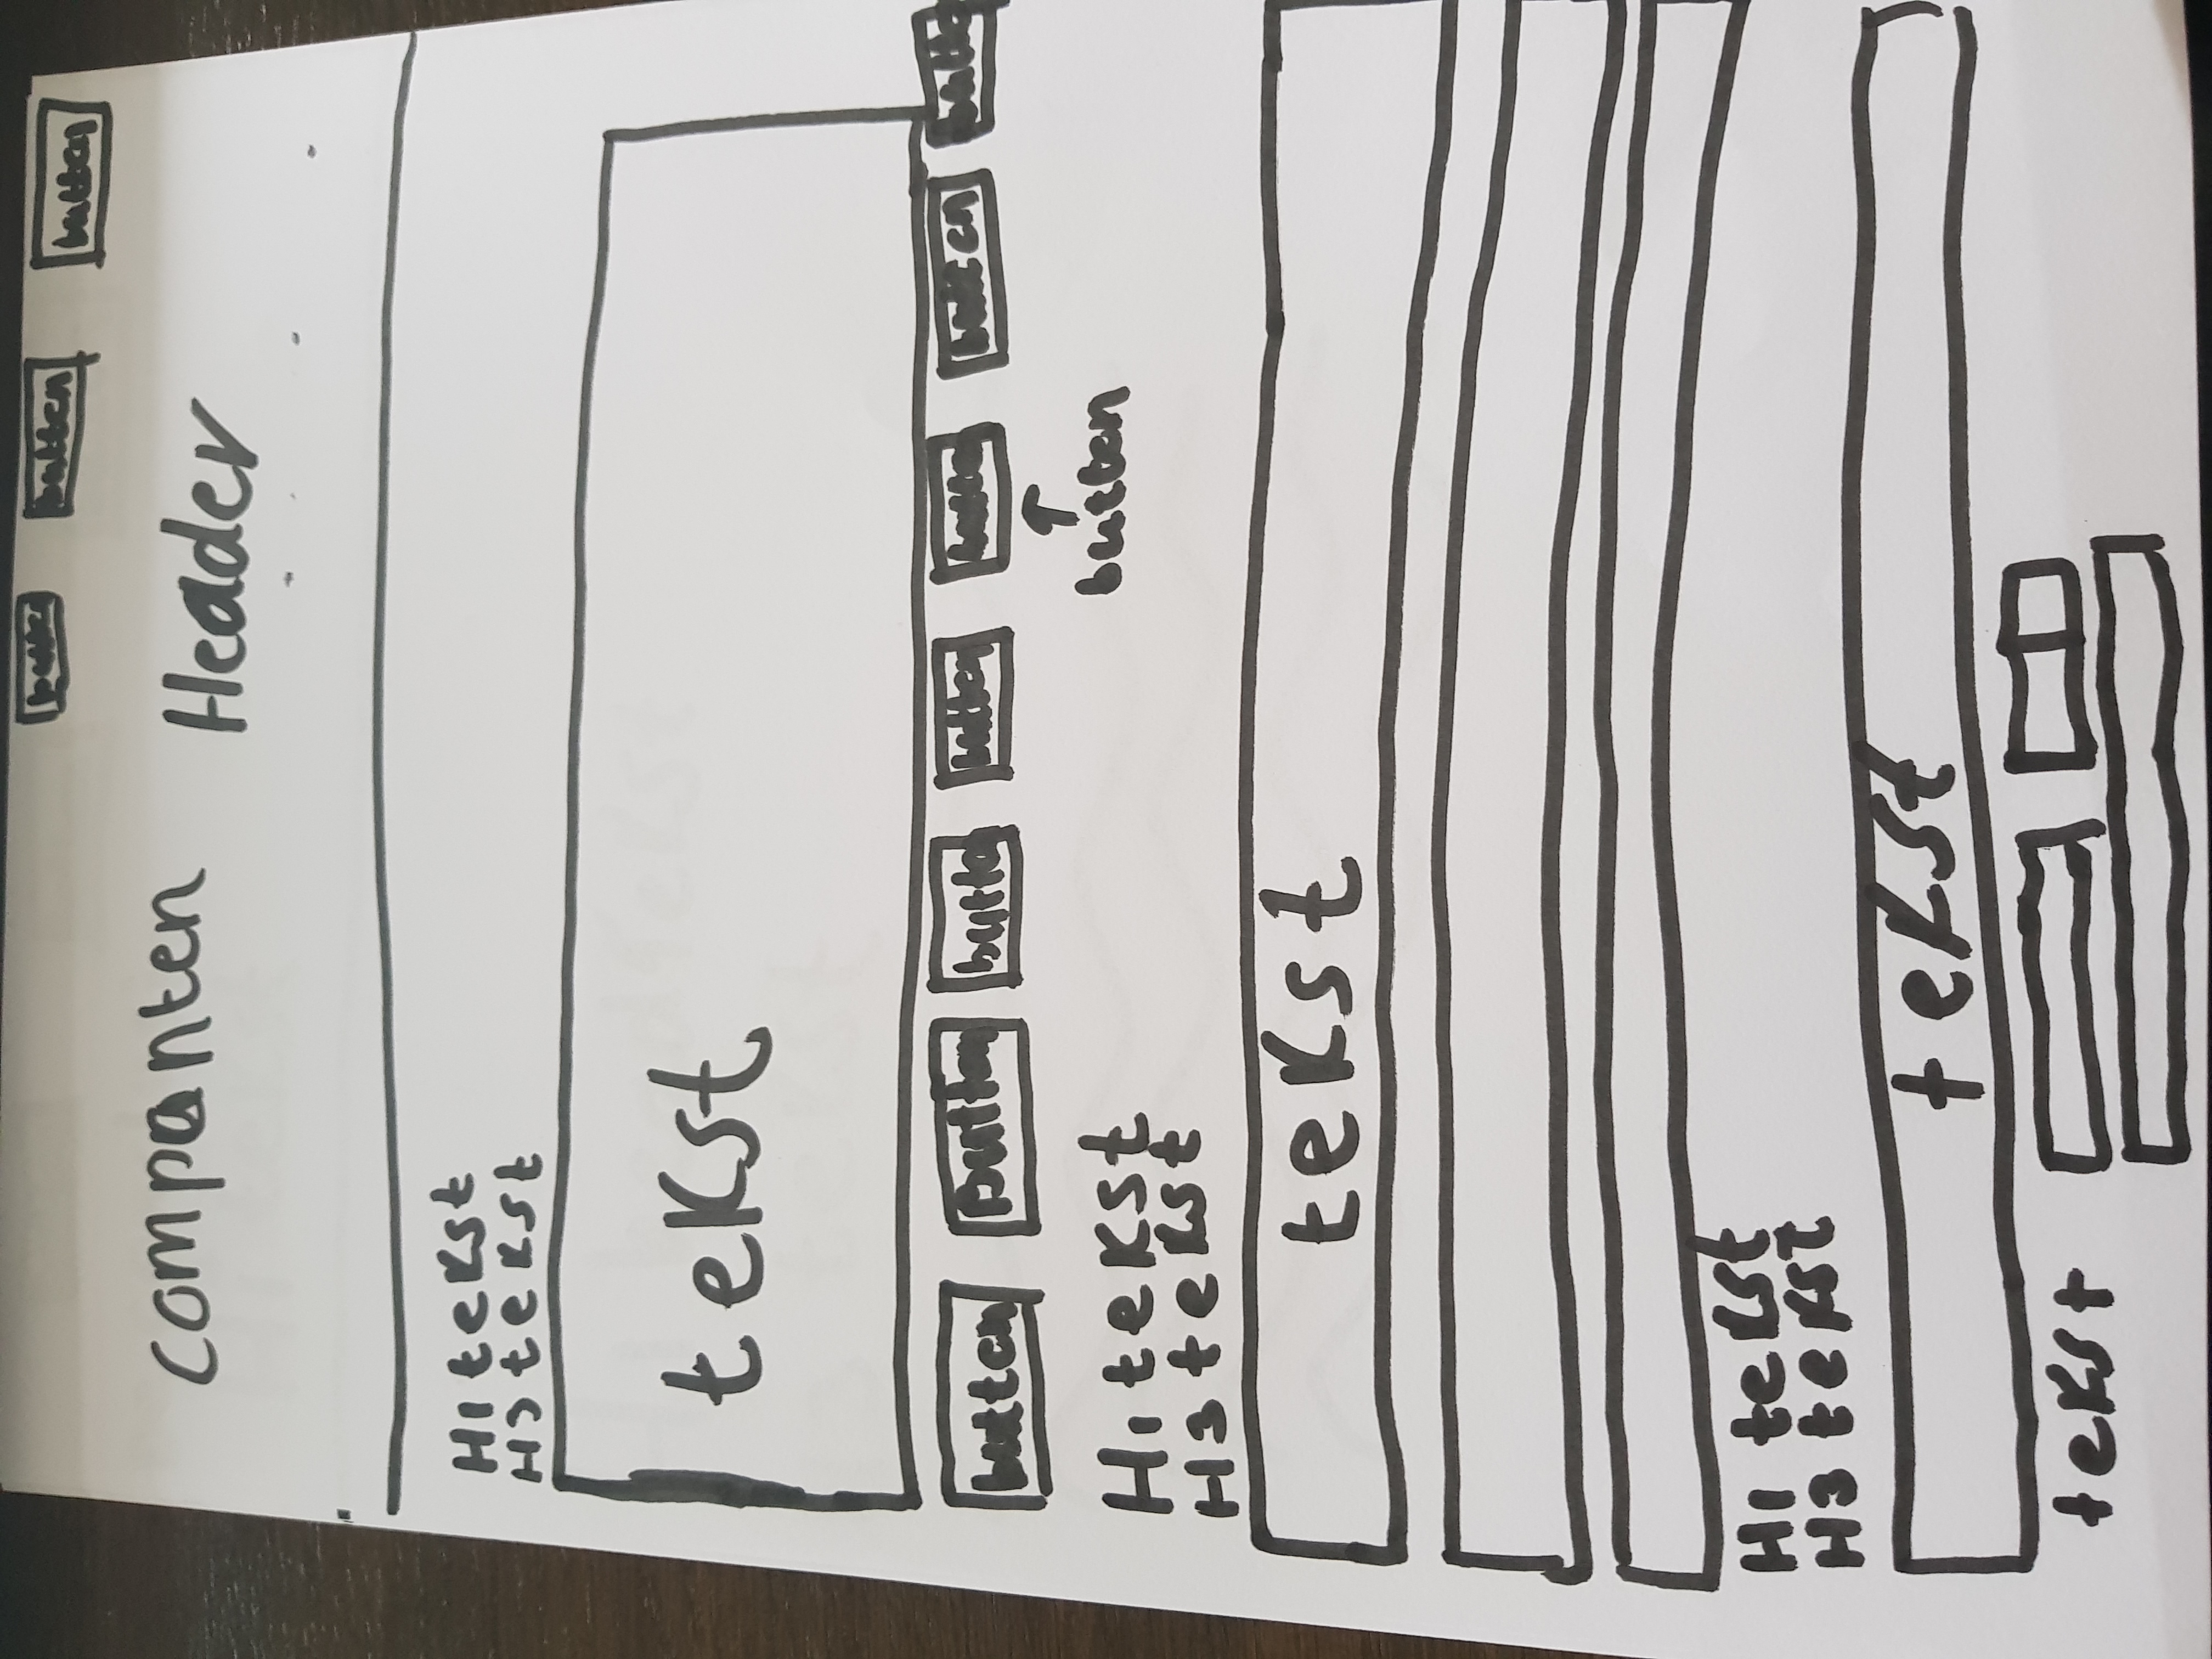 button button button
companten Header
H1 tekst
H3 tekst
tekst
button button button button button button butto
button
H1 tekst
H3 tekst
tekst
H1 tekst
H3 tekst
tekst
tekst